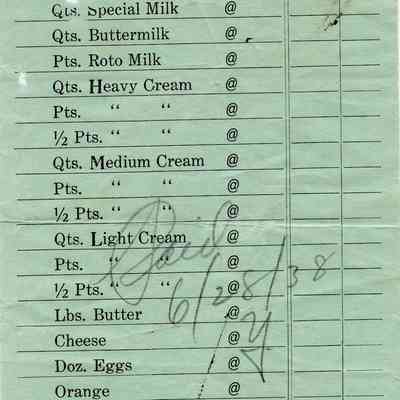 Qts. Special Milk @
Qts. Buttermilk @
Pts. Roto Milk @
Qts. Heavy Cream @
Pts. " " @
½ Pts. " " @
Qts. Medium Cream @
Pts. " " @
½ Pts. " " @
Qts. Light Cream @
Paid
Pts. " " @
½ Pts. " " @
6/28/38
Lbs. Butter @
Cheese @
Doz. Eggs @
Orange @